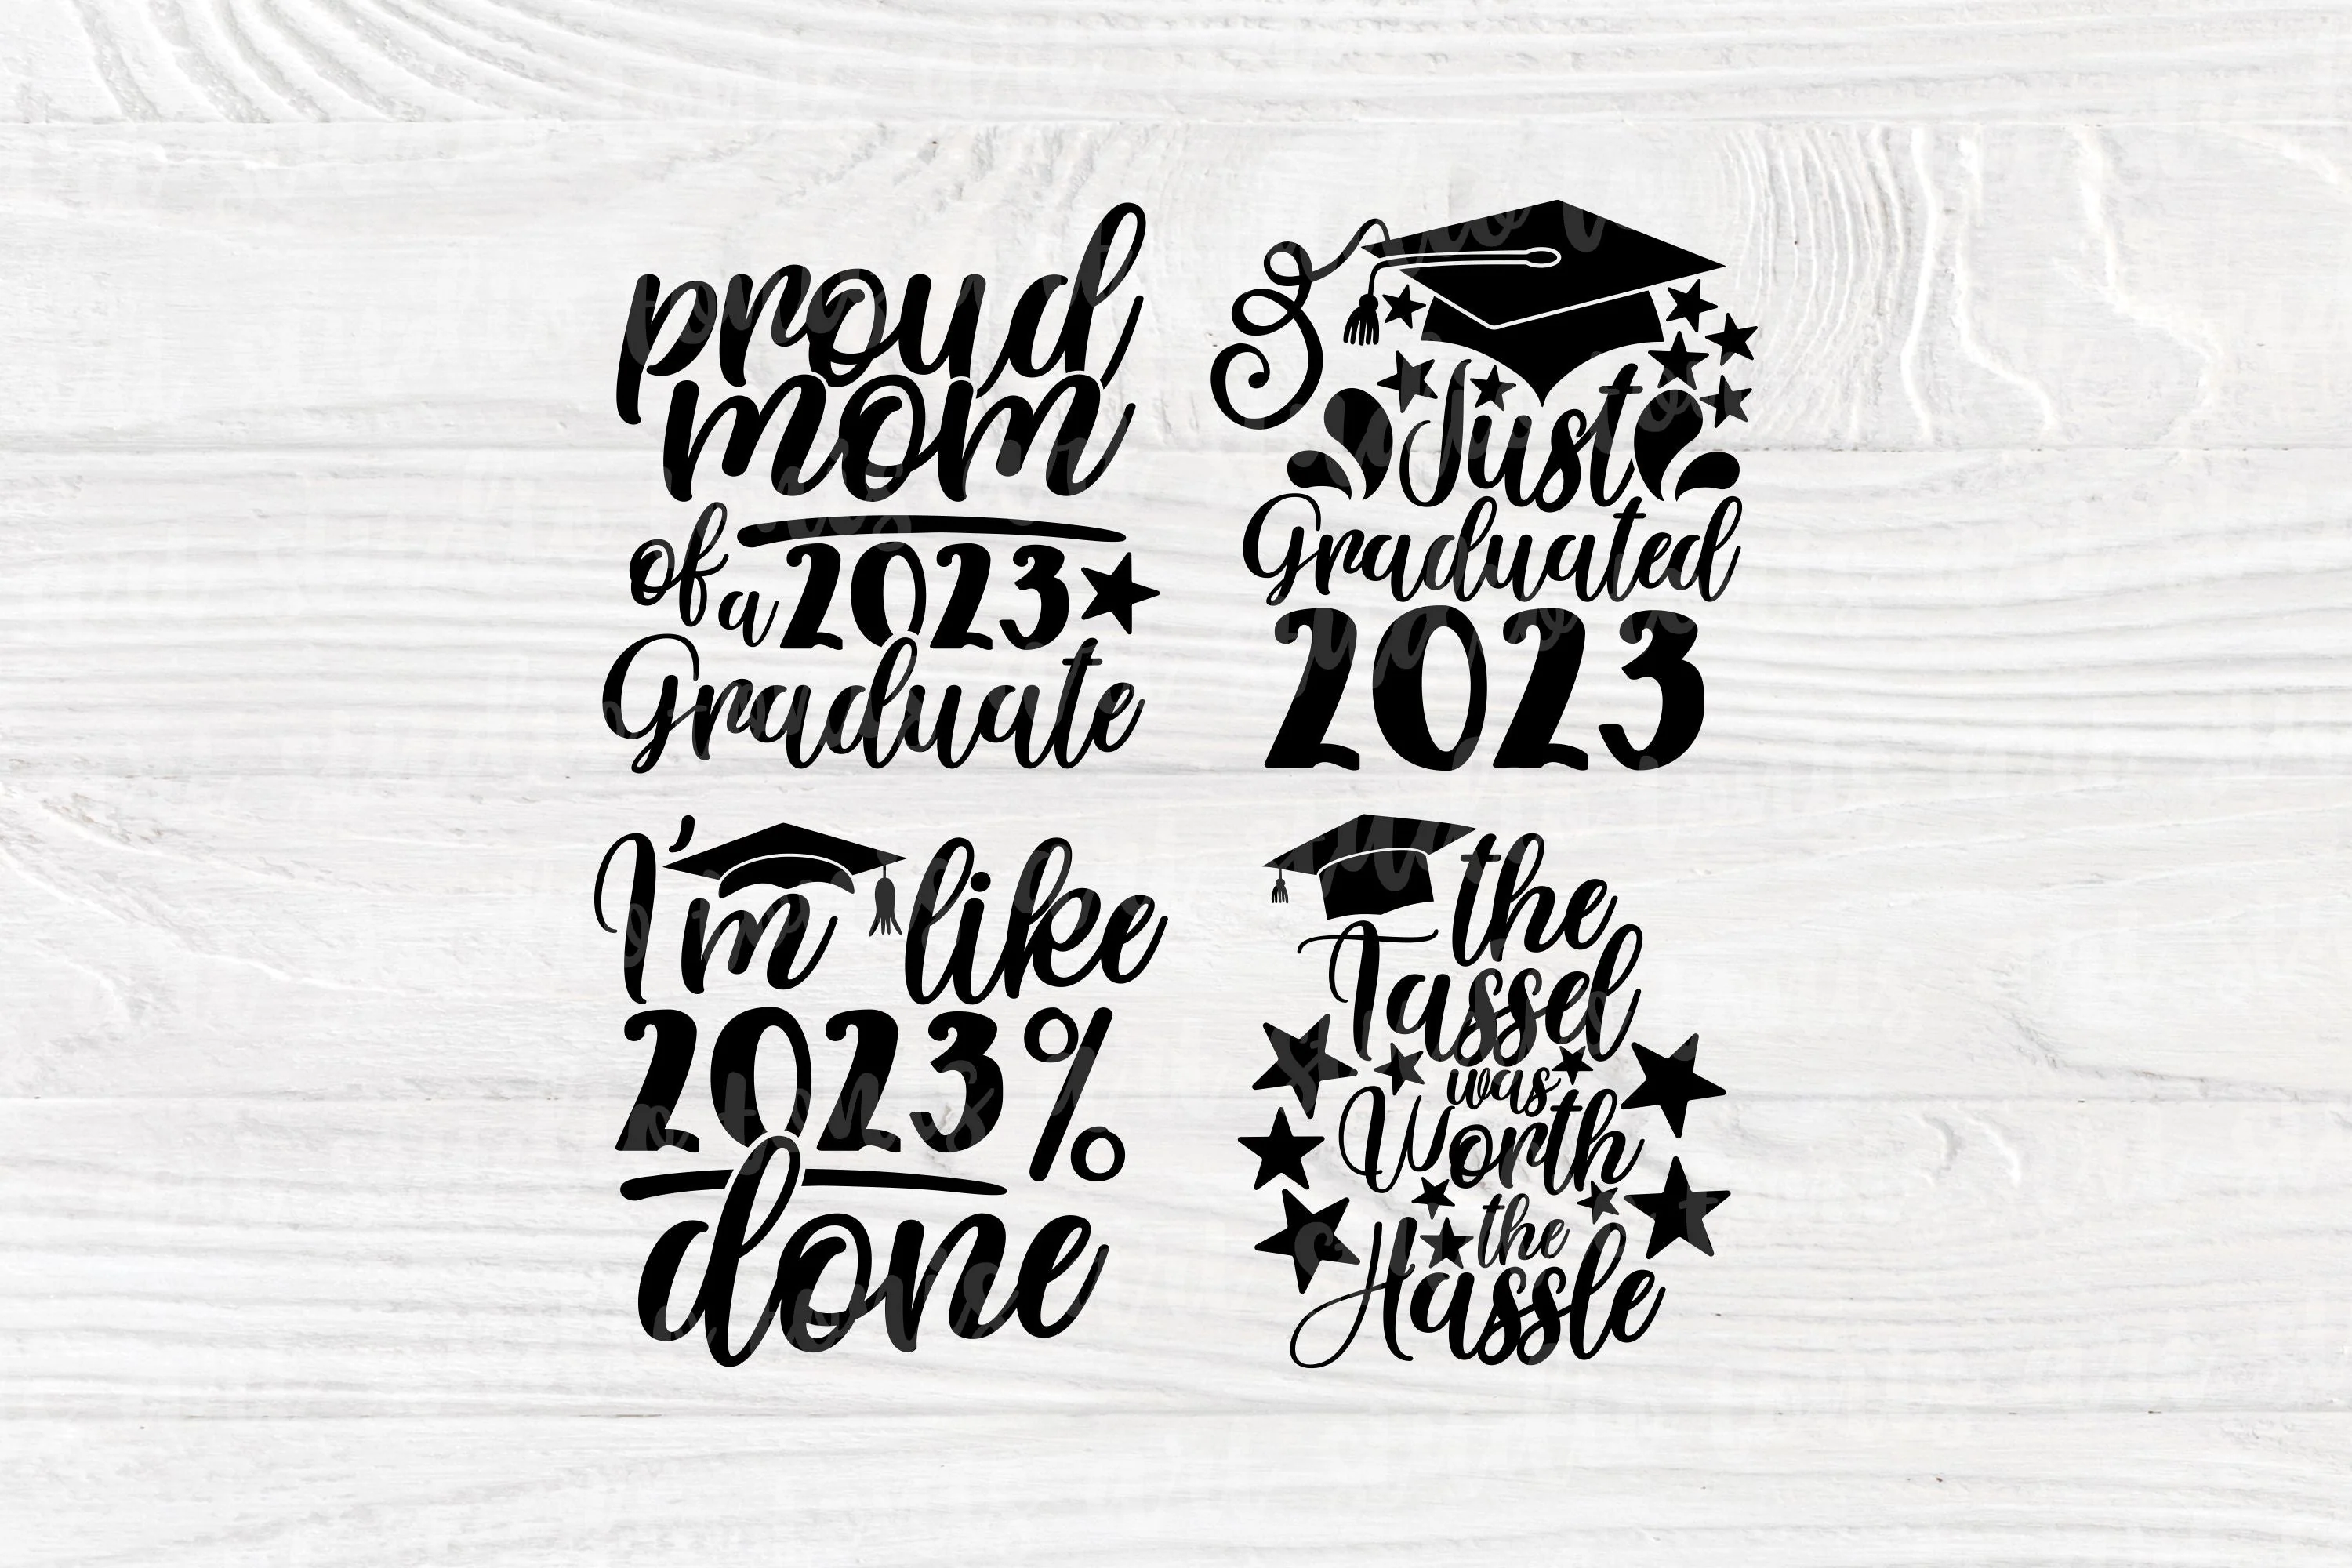 proud
mom
of a 2023
Graduate
Just
Graduated
2023
I'm like
2023%
done
the
Tassel
was
Worth
the
Hassle